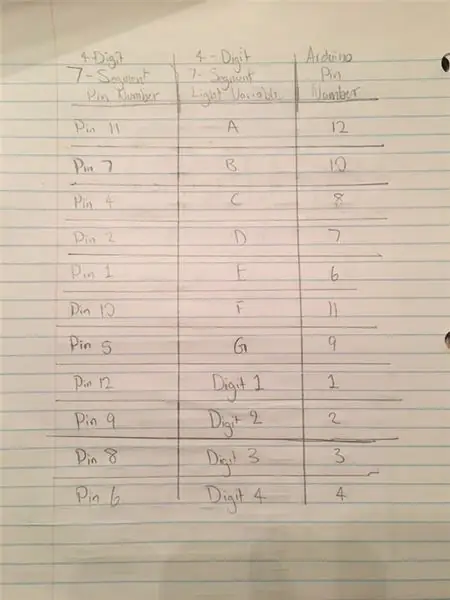 4-Digit 4-Digit Arduino
7-Segment 7-Segment Pin
Pin Number Light Variable Number
Pin 11 A 12
Pin 7 B 10
Pin 4 C 8
Pin 2 D 7
Pin 1 E 6
Pin 10 F 11
Pin 5 G 9
Pin 12 Digit 1 1
Pin 9 Digit 2 2
Pin 8 Digit 3 3
Pin 6 Digit 4 4